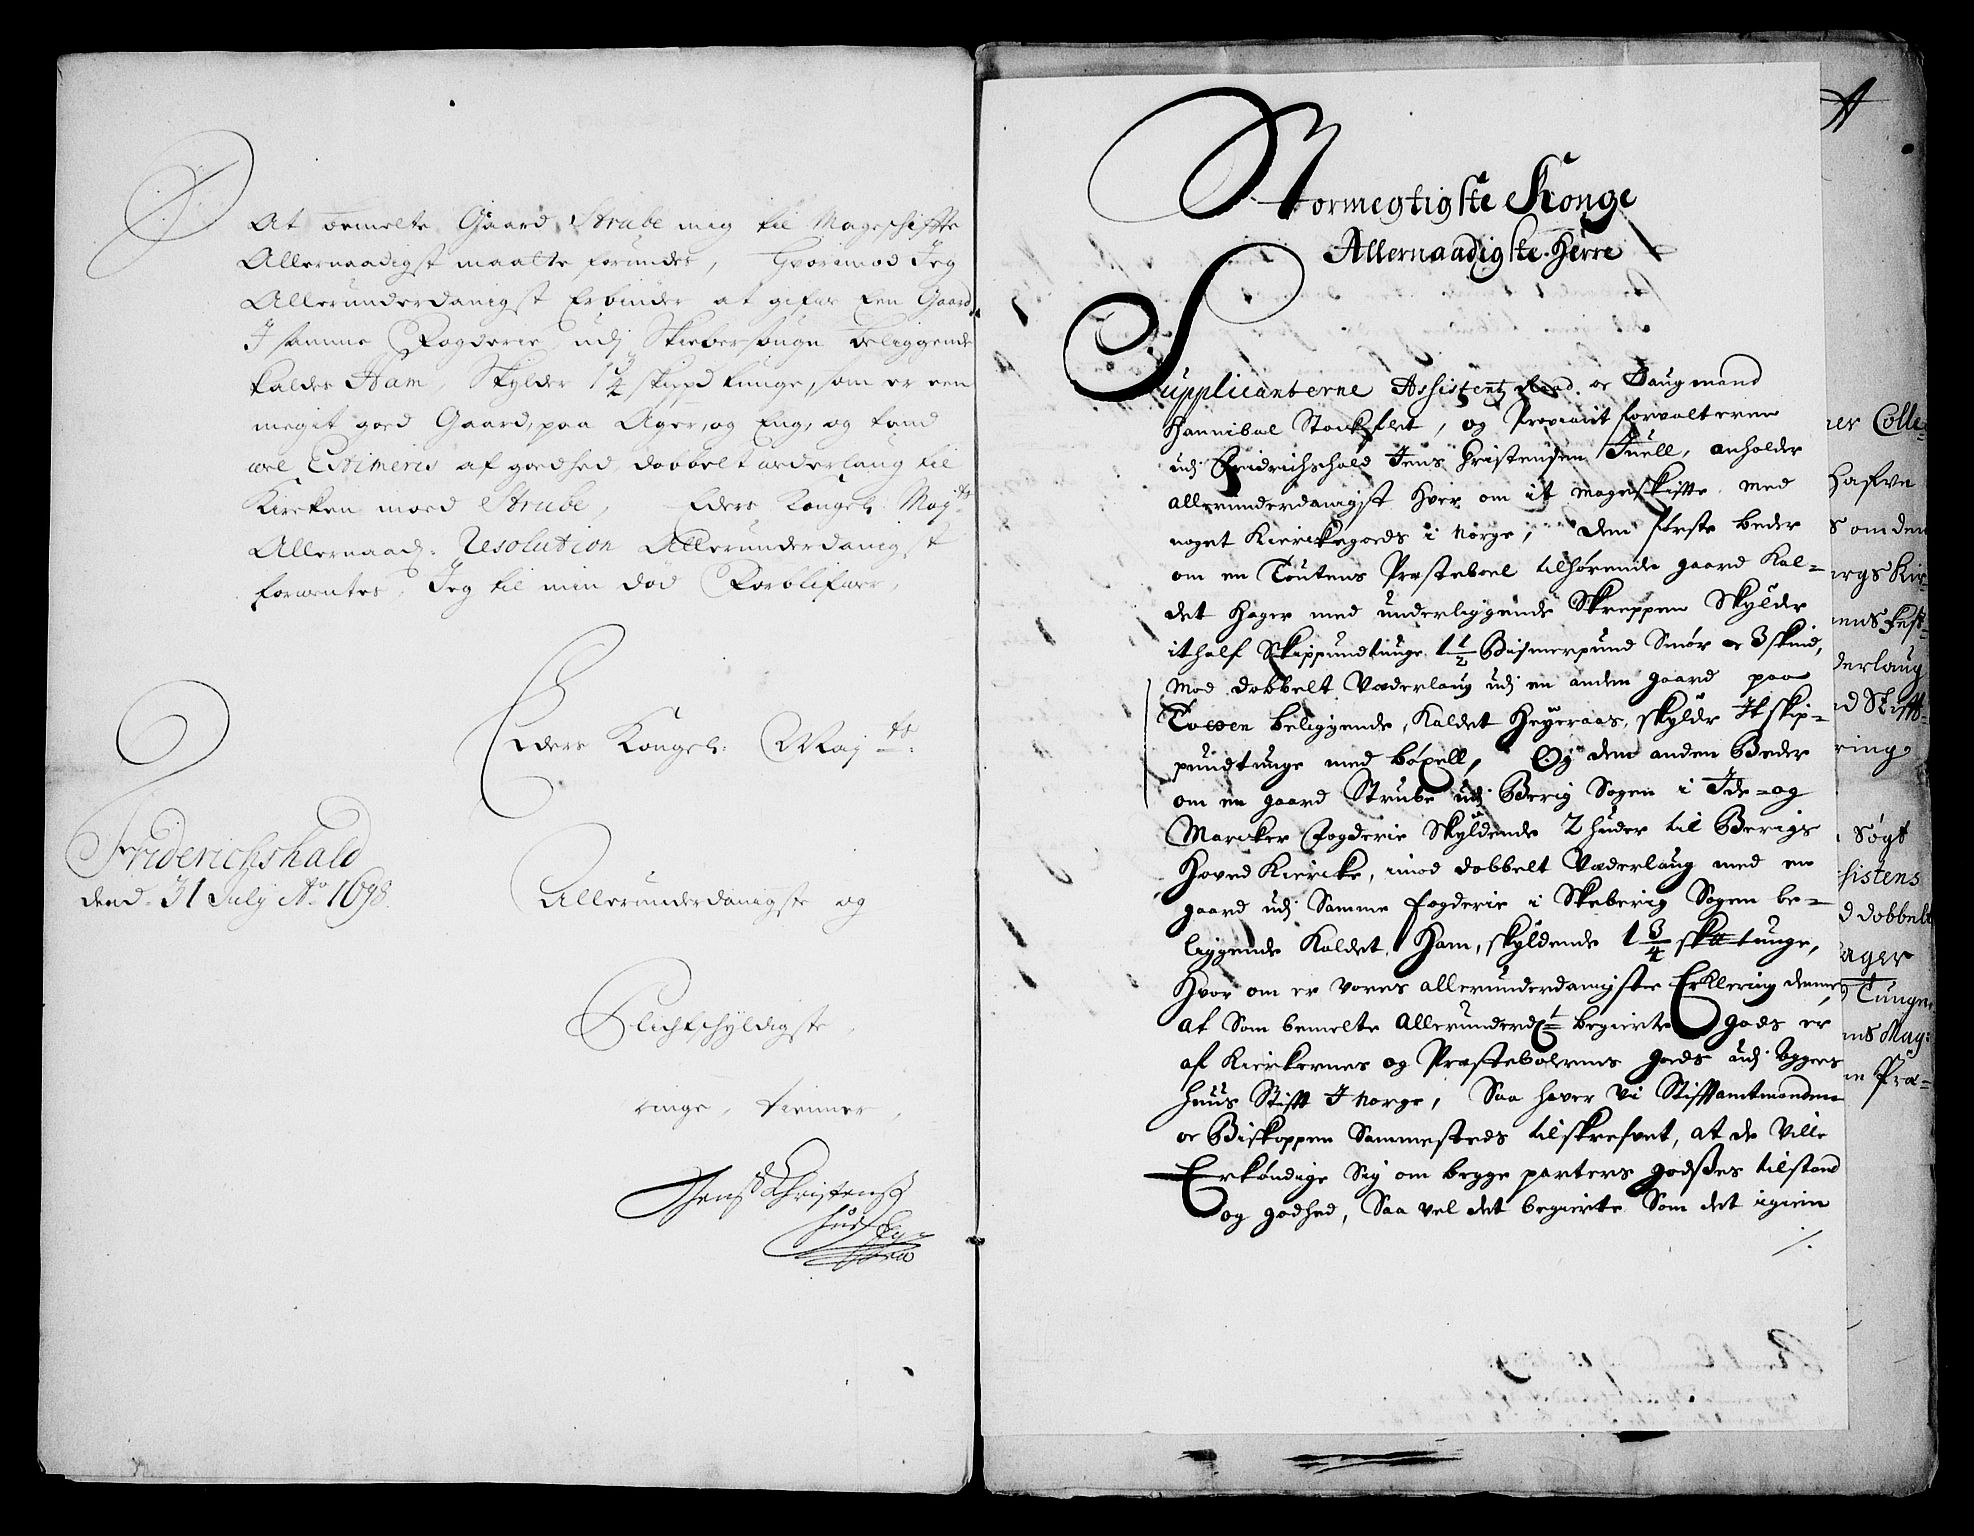 At bemelte Gaard Strube mig til Mageschiffte
Allernaadigst maatte forundes, Hvorimod Jeg
Allerunderdanigst Erbinder at gifve Een Gaard
J samme Fogderie udj Skiebersougn beliggende
kaldes Ham, Skylder 1 3/4 skippd tunge, som er een
meget goed Gaard, paa Ager, og Eng, og kand
vel Estimeris af goedhed dobbelt vederlaug til
Kircken moed Strube, Eders Kongel: Maj:ts
Allernaad: Resolution Allerunderdanigst
forventes, Jeg til min død Forblifver,
Eders Kongel: Maj:ts
Friderichshald
dend. 31 July Ao 1698.
Allerunderdanigste og
Plichtschyldigste
ringe, tienner,
Jens Christens
Juel
Normegtigste Konge
Allernaadigste Herre
Supplicanterne Assistentz Raad oc Laugmand
Hannibal Stockflet, og Proviant forvalteren
udj Fridrichshald Jens Christensen Juell, anholder
allerunderdanigst hver om it mageskifte med
noget Kierckegoeds i Norge, den første beder
om en Toutens Præsteboel tilhørende gaard Kal-
det Hager med underliggende Skreppen Skylder
it half Skippundtunge 1 1/2 Bismerpund Smør oc 3 skind,
mod dobbelt Vederlaug udj en anden gaard paa
Totten beliggende, Kaldet Heyeraas, skylder It skip-
pundtunge med bøxell, Og den anden Beder
om en gaard Strube udj Berig Sogen i Ide- og
Marcker Fogderie Skyldende 2 huder til Berigs
Hoved Kiercke, imod dobbelt Vederlaug med en
gaard udj Samme fogderie i Skeberig Sogen be-
liggende Kaldet Ham, skyldende 1 3/4 sk tunge,
Hvor om er vores allerunderdanigste Erklering denne,
at Som bemelte Allerunderd:t begierte gods er
af Kierkernes og Præstebolernes gods udj Agers
huus Stift I Norge, Saa hafver Vi Stiftamtmanden
oc Biskoppen Sammesteds tilskrefvet, at de Ville
Erkøndige Sig om begge parters godsses tilstand
og godhed, Saa vel det begierte Som det igien
/.
Colle-
Hafve
s om den
ergs Kir-
ens Fest-
derlaug
d Stifft-
ring
Søgt
sistens
d dobbelt
ager
Tunge,
ns May:
Præ-